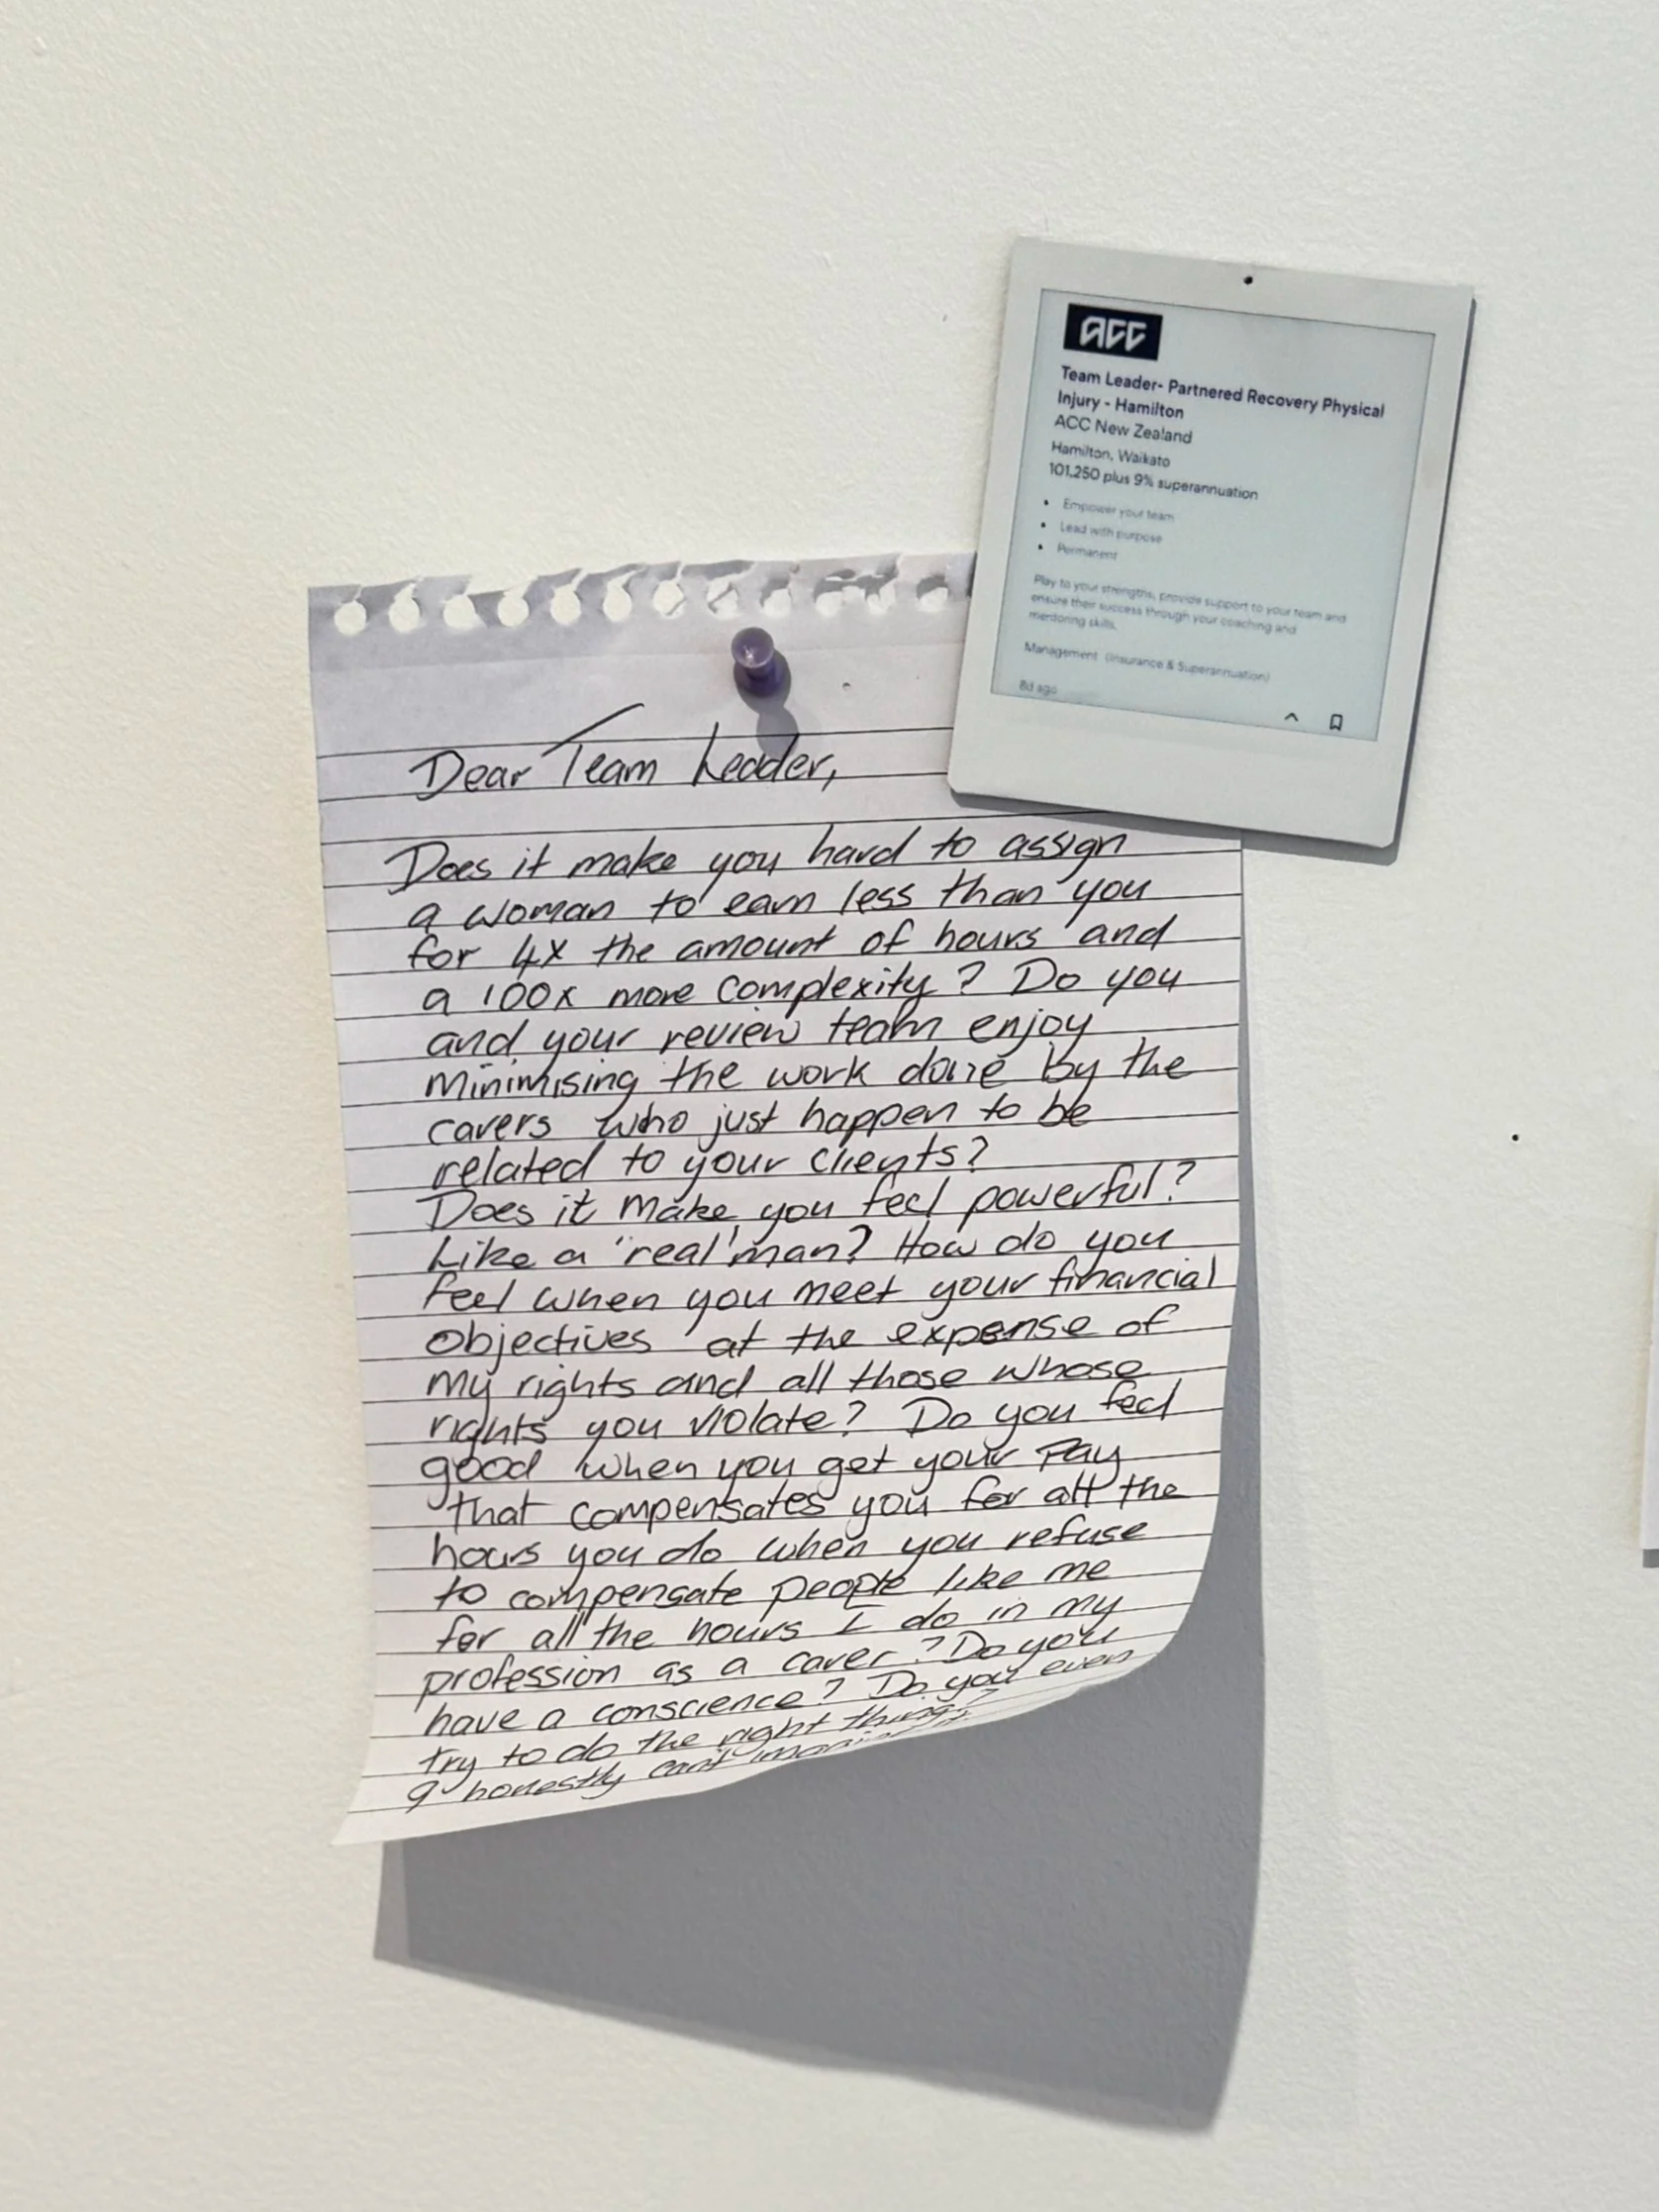 acc
Team Leader- Partnered Recovery Physical
Injury - Hamilton
ACC New Zealand
Hamilton, Waikato
101,250 plus 9% superannuation
• Empower your team
• Lead with purpose
• Permanent
Play to your strengths, provide support to your team and
ensure their success through your coaching and
mentoring skills.
Management (Insurance & Superannuation)
8d ago
Dear Team Leader,
Does it make you hard to assign
a woman to earn less than you
for 4x the amount of hours and
a 100x more complexity? Do you
and your review team enjoy
minimising the work done by the
carers who just happen to be
related to your clients?
Does it make you feel powerful?
Like a "real" man? How do you
feel when you meet your financial
objectives at the expense of
my rights and all those whose
rights you violate? Do you feel
good when you get your pay
that compensates you for all the
hours you do when you refuse
to compensate people like me
for all the hours I do in my
profession as a carer? Do you
have a conscience? Do you even
try to do the right thing?
I honestly can't imagine it